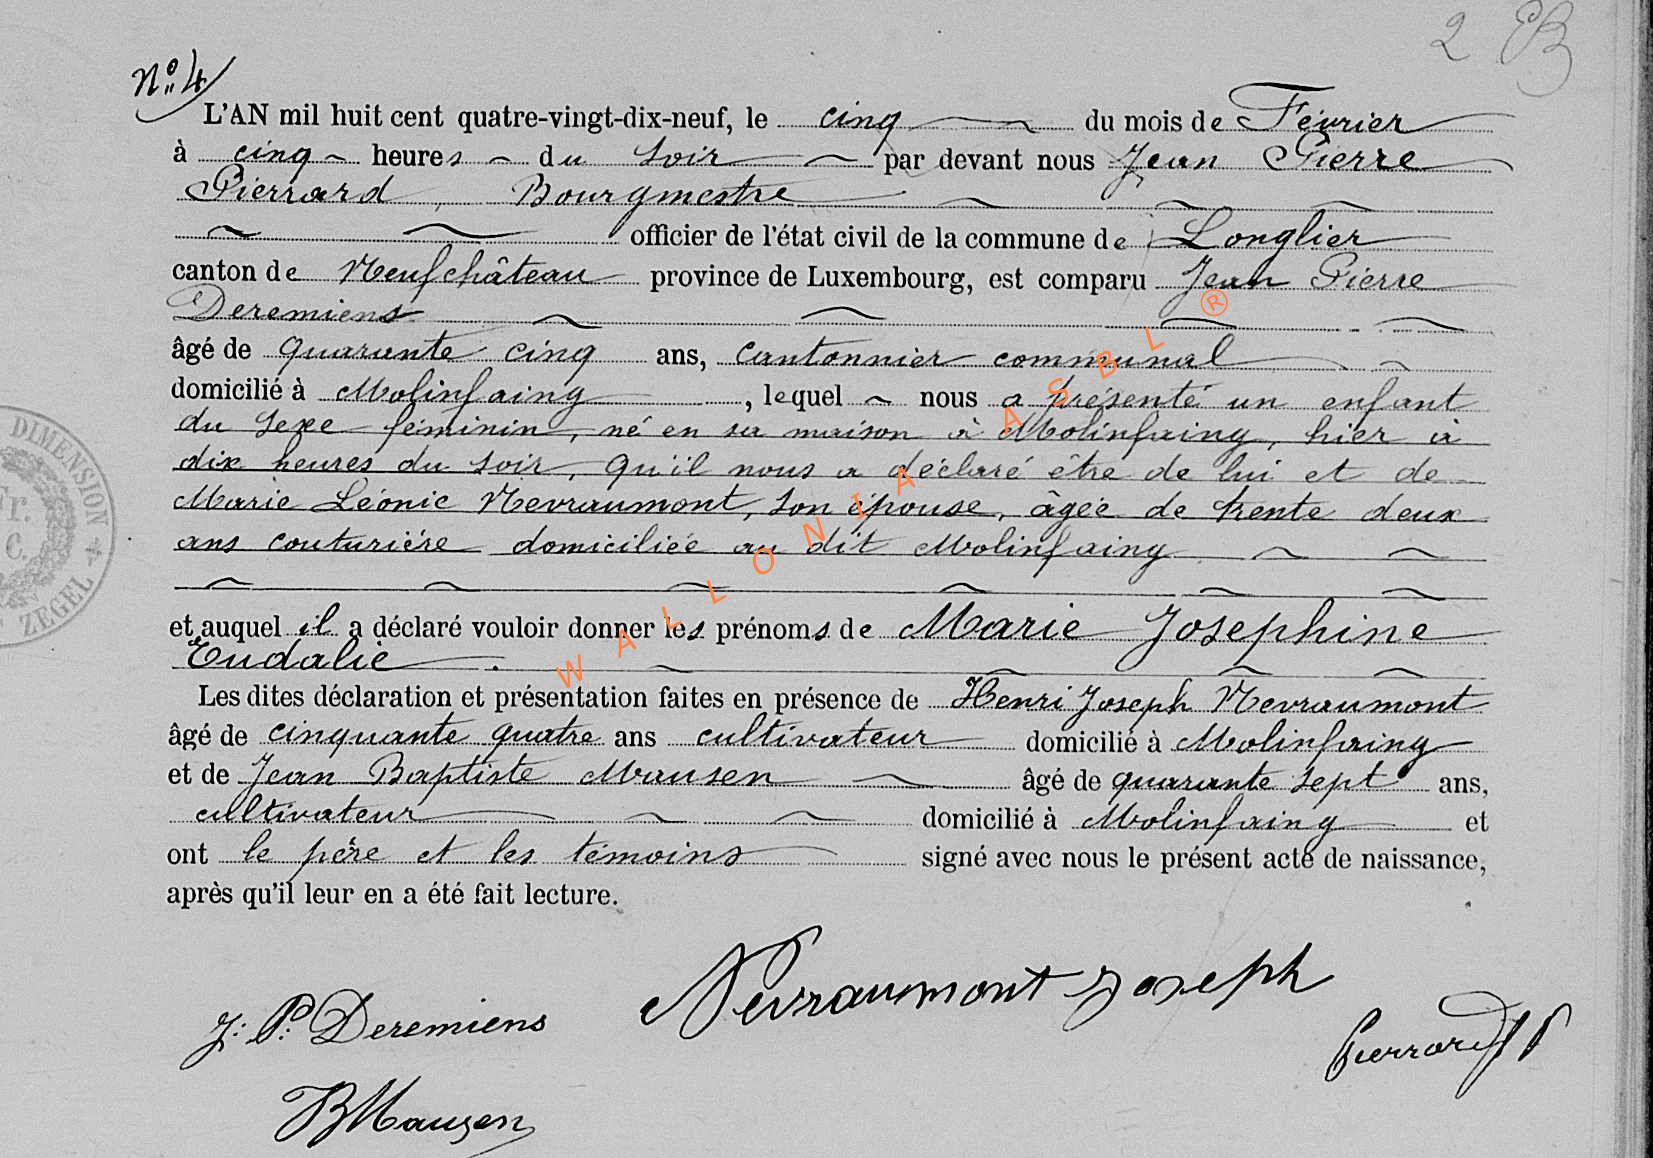 2 B
N° 4
L'AN mil huit cent quatre-vingt-dix-neuf, le cinq du mois de Février
à cinq heures du soir par devant nous Jean Pierre
Pierrard, Bourgmestre
officier de l'état civil de la commune de Longlier
canton de Neufchâteau province de Luxembourg, est comparu Jean Pierre
Deremiens
âgé de quarante cinq ans, cantonnier communal
domicilié à Molinfaing, lequel nous a présenté un enfant
du sexe féminin, né en sa maison à Molinfaing, hier à
dix heures du soir, qu'il nous a déclaré être de lui et de
Marie Léonie Nevraumont, son épouse, âgée de trente deux
ans couturière domiciliée au dit Molinfaing
et auquel il a déclaré vouloir donner les prénoms de Marie Josephine
Eudalie.
Les dites déclaration et présentation faites en présence de Henri Joseph Nevraumont
âgé de cinquante quatre ans cultivateur domicilié à Molinfaing
et de Jean Baptiste Mausen âgé de quarante sept ans,
cultivateur domicilié à Molinfaing et
ont le père et les témoins signé avec nous le présent acte de naissance,
après qu'il leur en a été fait lecture.
Nevraumont Joseph
J. P. Deremiens
Pierrard JP
JB Mausen
DIMENSION
Fr.
C.
ZEGEL
WALLONIA ASBL ®